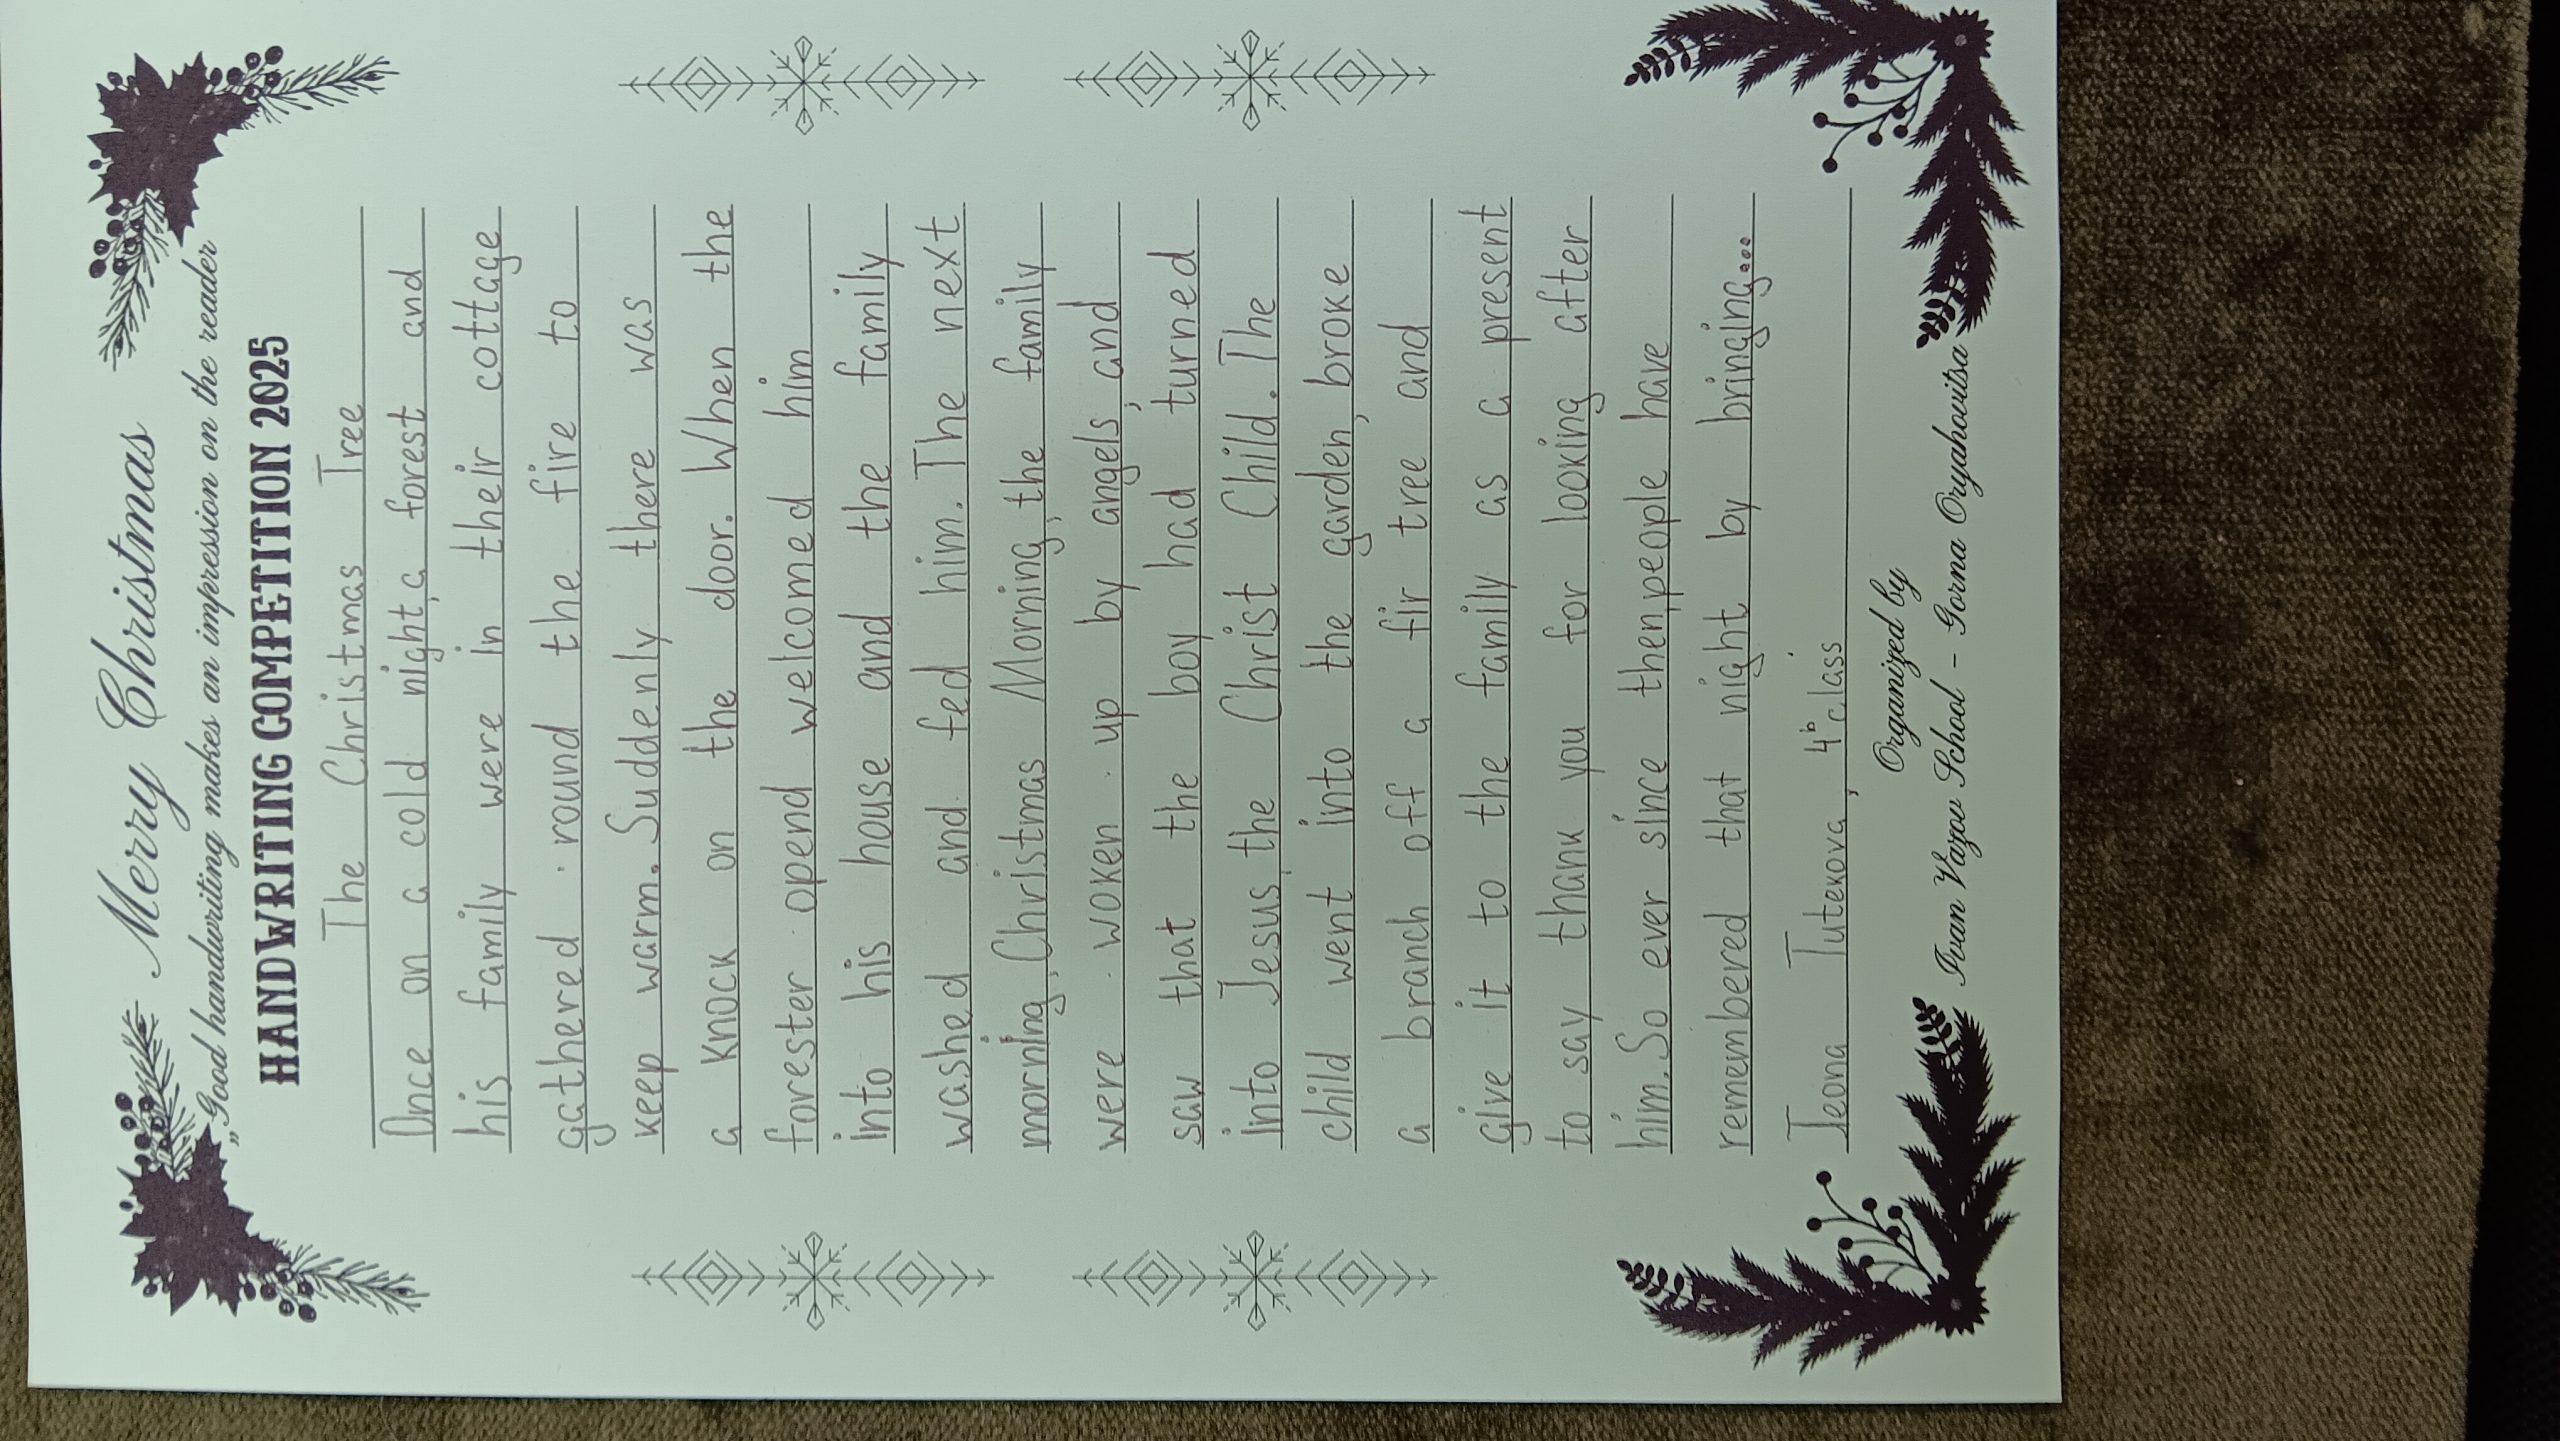 Merry Christmas
„Good handwriting makes an impression on the reader
HANDWRITING COMPETITION 2025
The Christmas Tree
Once on a cold night, a forest and
his family were in their cottage
gathered round the fire to
keep warm. Suddenly there was
a knock on the door. When the
forester opend welcomed him
into his house and the family
washed and fed him. The next
morning, Christmas Morning, the family
were woken up by angels, and
saw that the boy had turned
into Jesus, the Christ Child. The
child went into the garden, broke
a branch off a fir tree and
give it to the family as a present
to say thank you for looking after
him. So ever since then, people have
remembered that night by bringing...
Teona Tutekova, 4b class
Organized by
Ivan Vazov School - Gorna Oryahovitsa